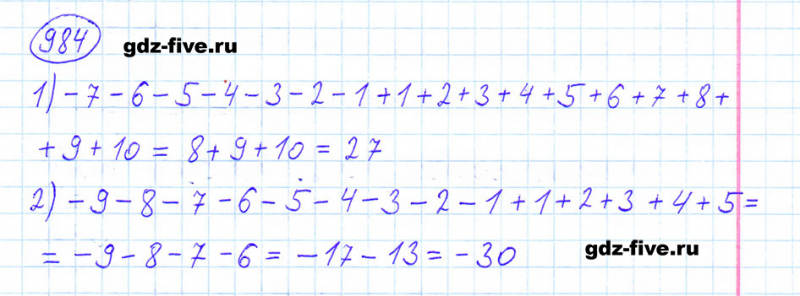 984 gdz-five.ru
1) -7-6-5-4-3-2-1+1+2+3+4+5+6+7+8+
+9+10=8+9+10=27
2) -9-8-7-6-5-4-3-2-1+1+2+3+4+5=
=-9-8-7-6=-17-13=-30 gdz-five.ru